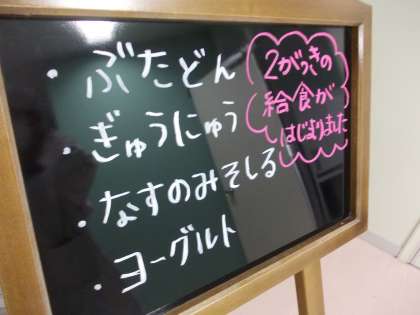 ・ぶたどん
・ぎゅうにゅう
・なすのみそしる
・ヨーグルト
2がっきの
給食が
はじまりました